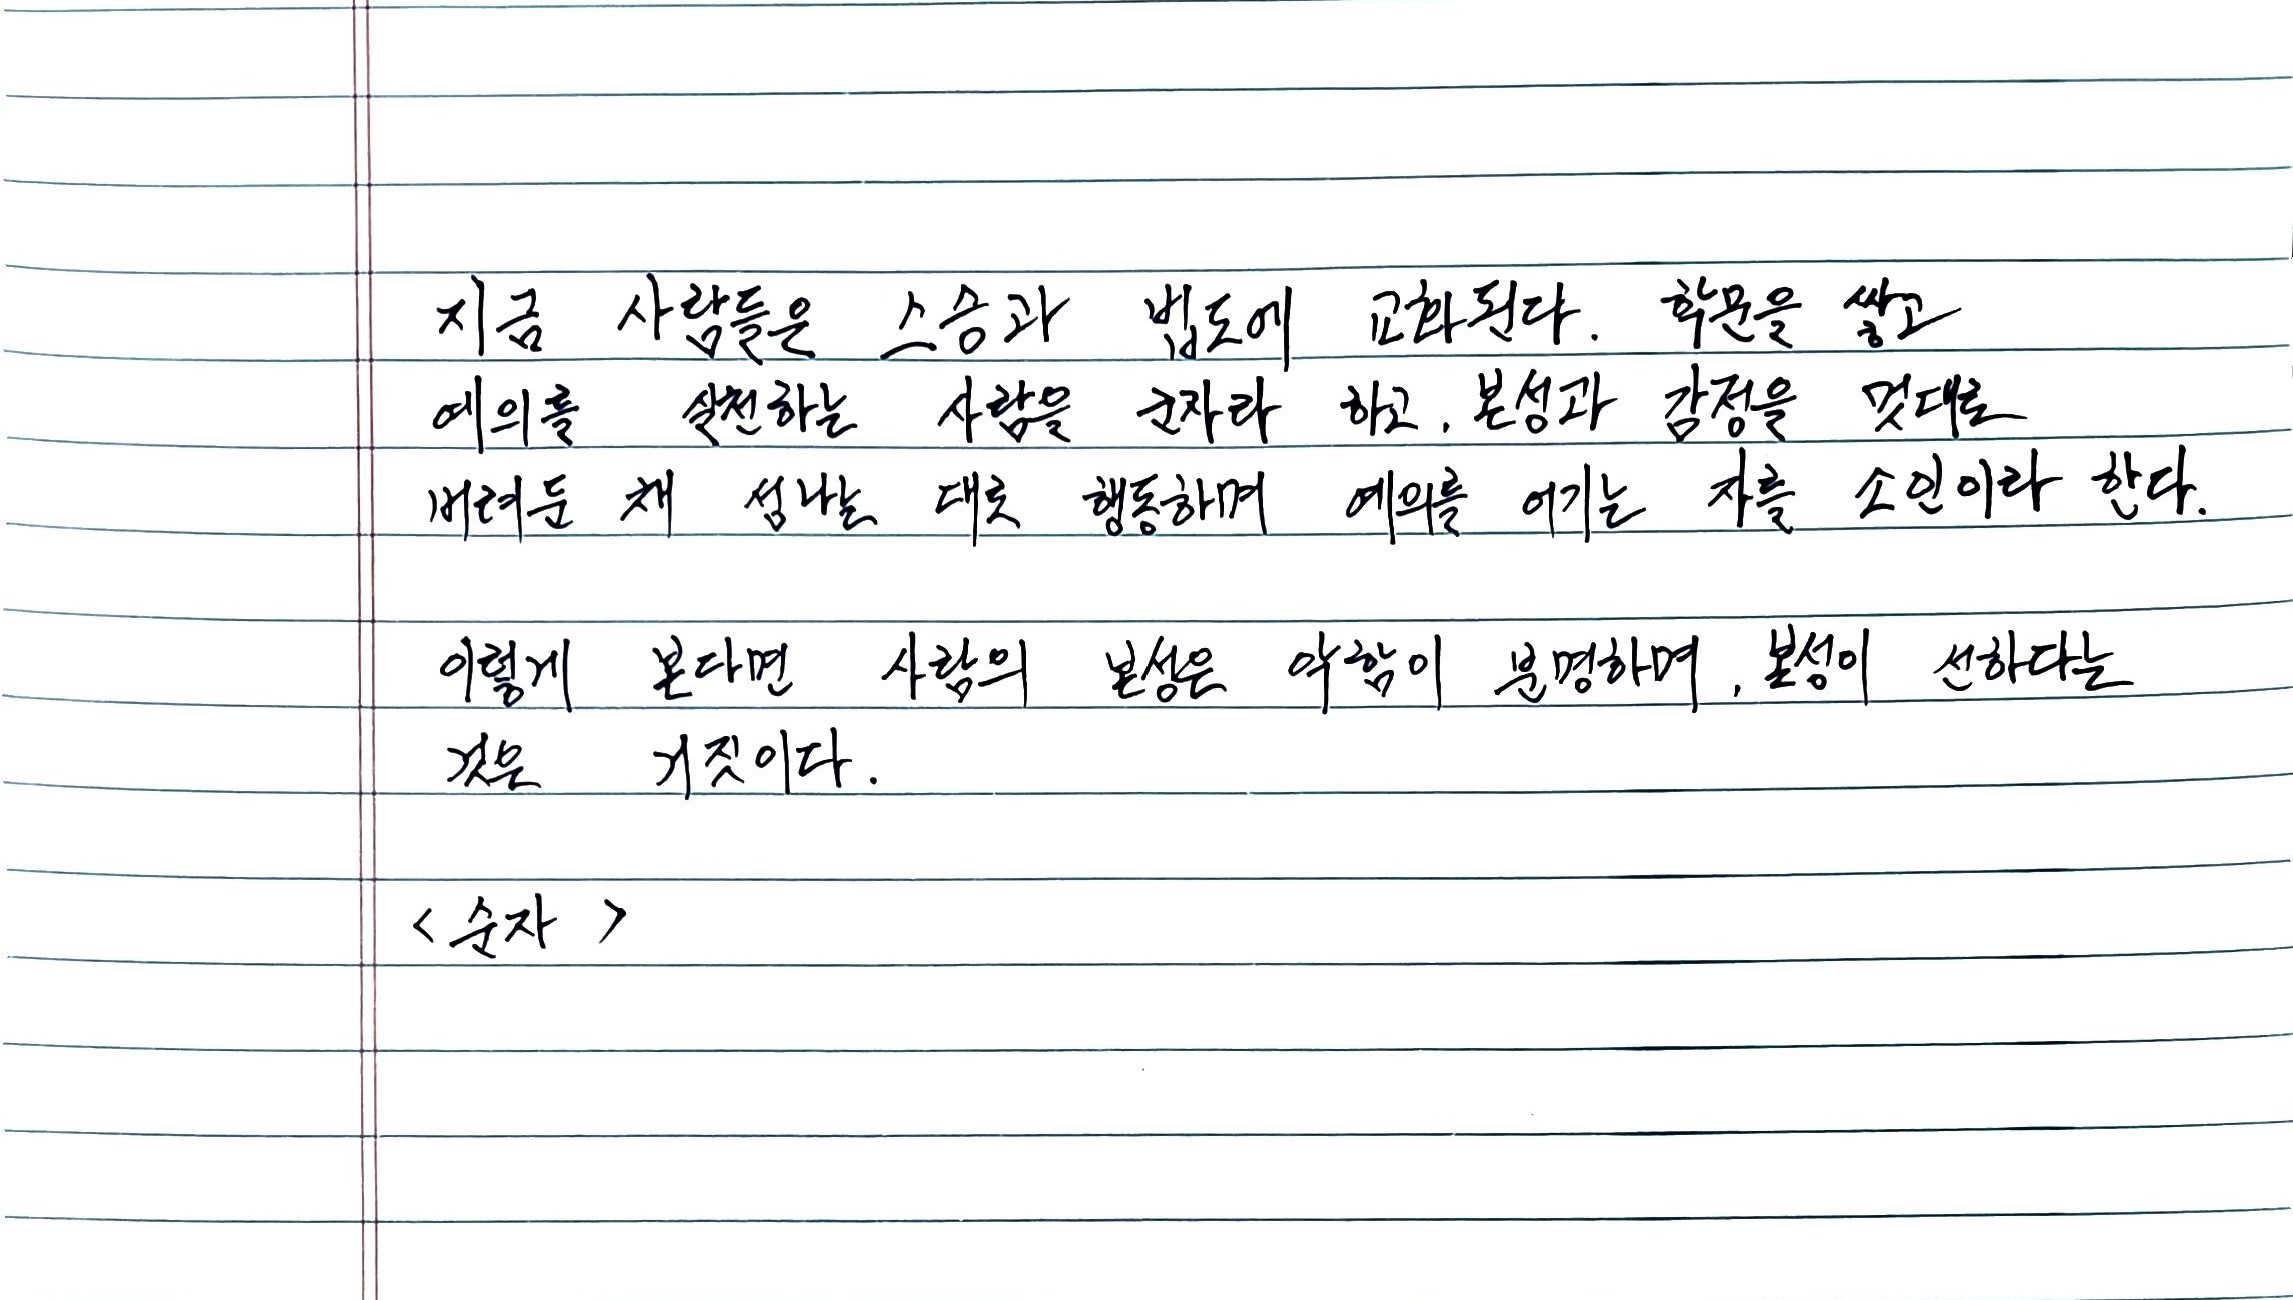 지금 사람들은 스승과 법도에 교화된다. 학문을 쌓고
예의를 실천하는 사람을 군자라 하고, 본성과 감정을 멋대로
버려둔 채 성나는 대로 행동하며 예의를 어기는 자를 소인이라 한다.
이렇게 본다면 사람의 본성은 악함이 분명하며, 본성이 선하다는
것은 거짓이다.
<순자>